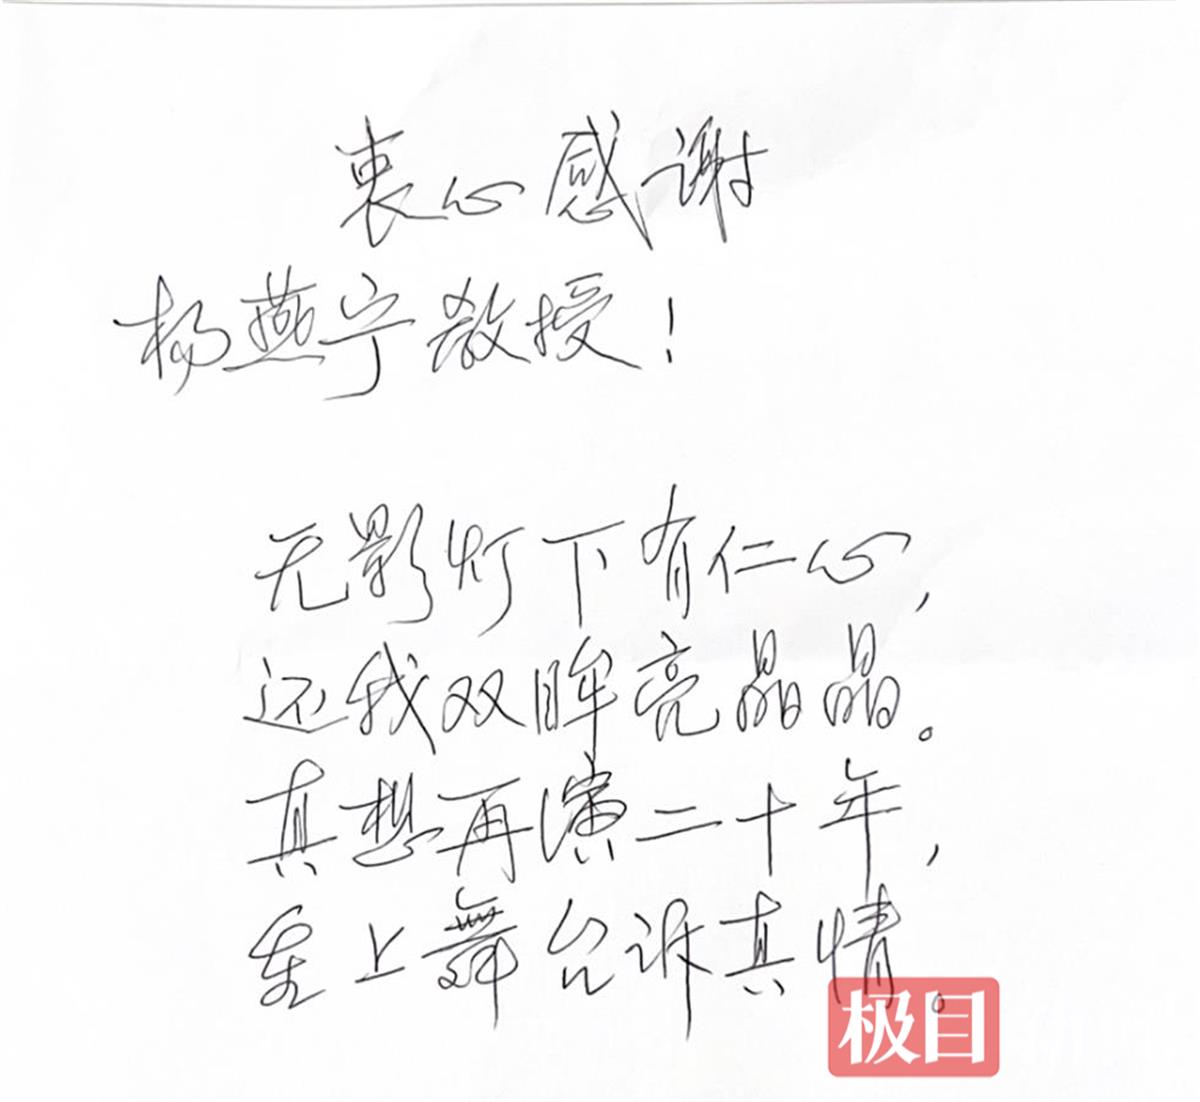 衷心感谢
杨燕宁教授！
无影灯下有仁心，
还我双眸亮晶晶。
真想再演二十年，
重上舞台诉真情。
极目